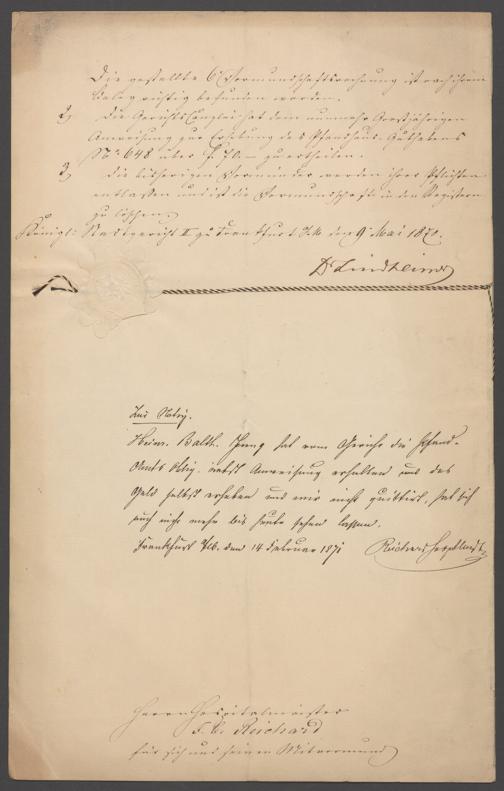 Die gestellte 6t Vormundschaftsrechnung ist nach ihrem
Beleg richtig befunden worden.
2, Die Gerichts Canzlei hat dem nunmehr Großjährigen
Anweisung zur Erhebung des Pfandhaus-Guthabens
No 648 über f. 70.— zu ertheilen.
3, die bisherigen Vorminder werden ihrer Pflichten
entlassen und ist die Vormundschaft in den Registern
zu löschen
Königl: Stadtgericht II zu Frankfurt a/M den 9 Mai 1870.
Dr Lindheimer
Zur Notiz.
Heinr. Balth. Jung hat vom Gericht die Pfand-
Amts Notiz nebst Anweisung erhalten und das
Geld selbst erhoben und mir nicht quittirt, hat sich
auch nicht mehr bis heute sehen lassen.
Frankfurt a/M. den 14 Februar 1871
Herrn Hospitalmeister
Reichard
für sich und seinen Mitvormund